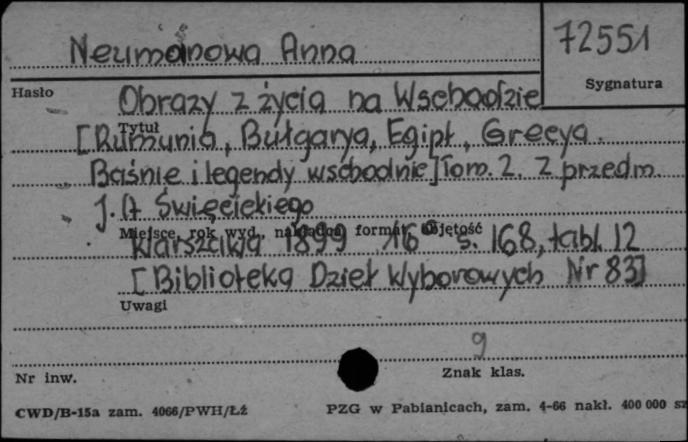 Neumanowa Anna
72551
Hasło
Sygnatura
Obrazy z życia na Wschodzie
Tytuł
[Rumunia, Bułgarya, Egipt, Grecya.
Baśnie i legendy wschodnie] Tom. 2. Z przedm.
J. A Święcickiego
Miejsce, rok wyd., nakładca, format, objętość
Warszawa 1899 16° s. 168, tabl. 12
[Biblioteka Dzieł Wyborowych Nr 83]
Uwagi
9
Nr inw.
Znak klas.
CWD/B-15a zam. 4066/PWH/Łź
PZG w Pabianicach, zam. 4-66 nakł. 400 000 sz